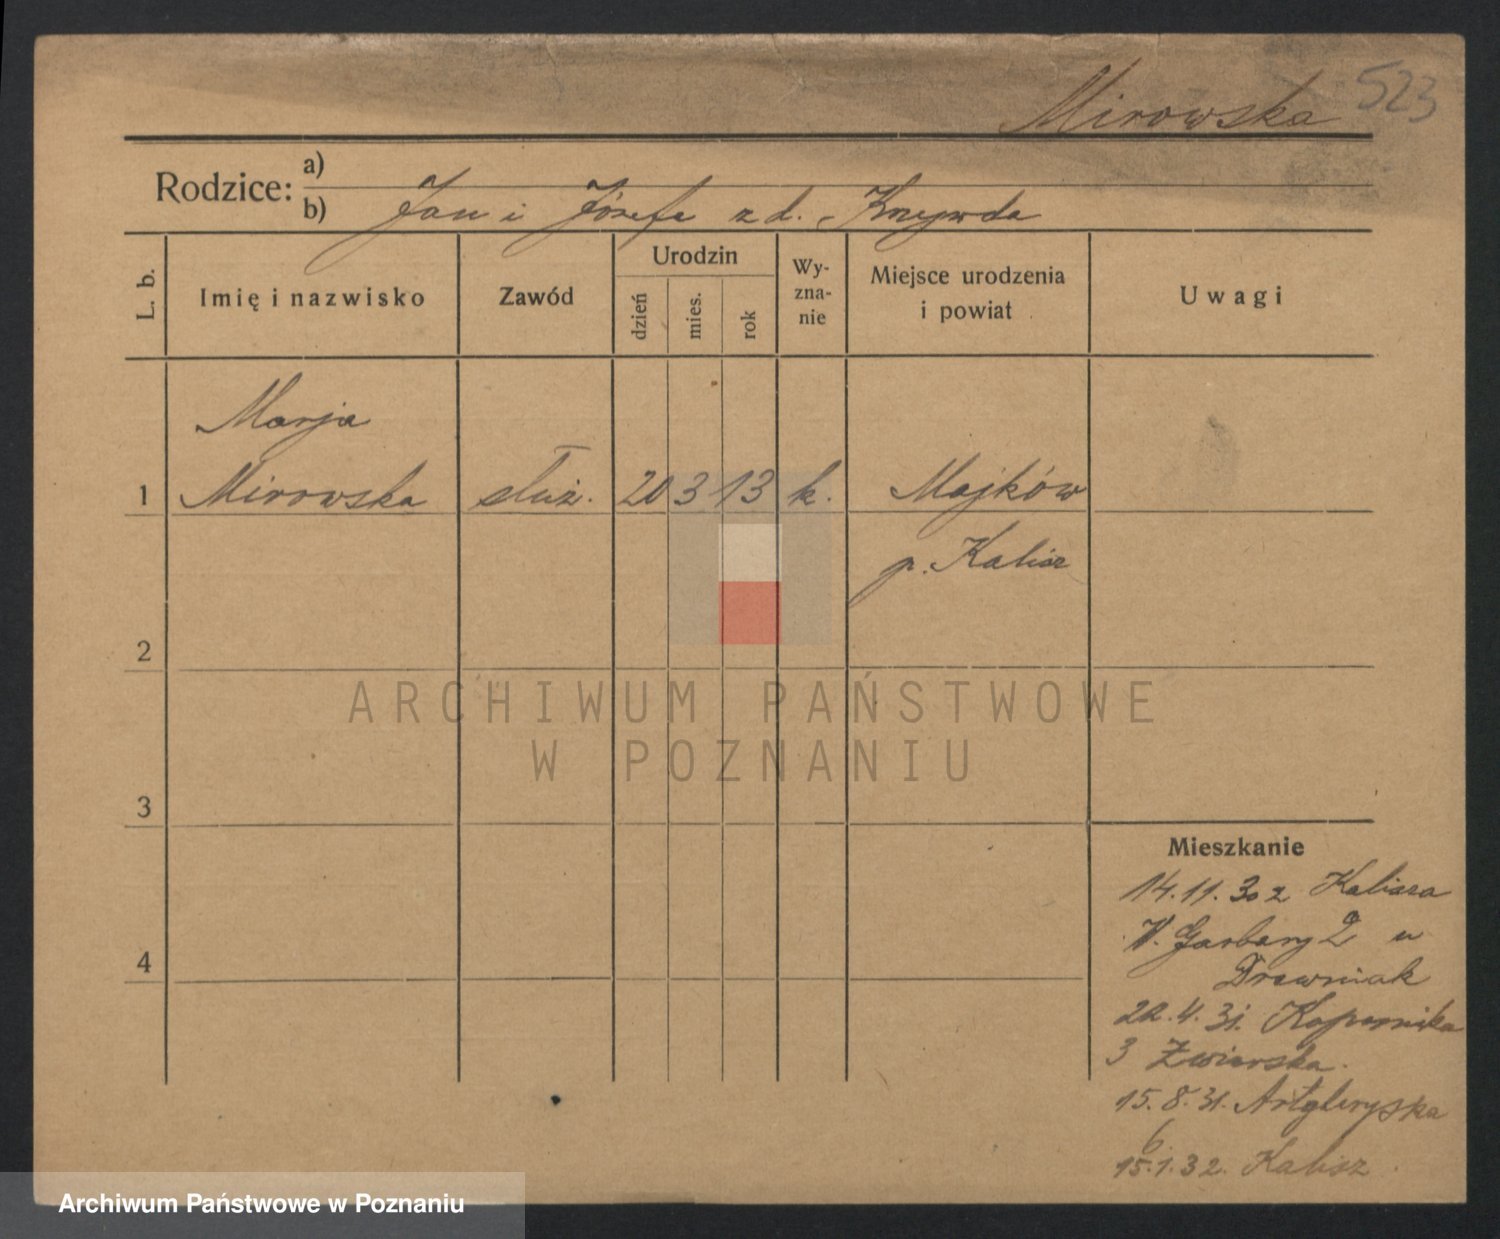 Mirowska 523
Rodzice: a)
b) Jan i Józefa z d. Krzywda
L. b.
Imię i nazwisko
Zawód
Urodzin
dzień
mies.
rok
Wy-
zna-
nie
Miejsce urodzenia
i powiat
Uwagi
Marja
1 Mirowska służ. 20 3 13 k. Majków
p. Kalisz
2
3
4
Mieszkanie
14.11.30 z Kalisza
W. Garbary 2 u
Drewniak
22.4.31. Kopernika
3 Zwierska.
15.8.31. Artyleryska
6
15.1.32. Kalisz
ARCHIWUM PAŃSTWOWE
W POZNANIU
Archiwum Państwowe w Poznaniu